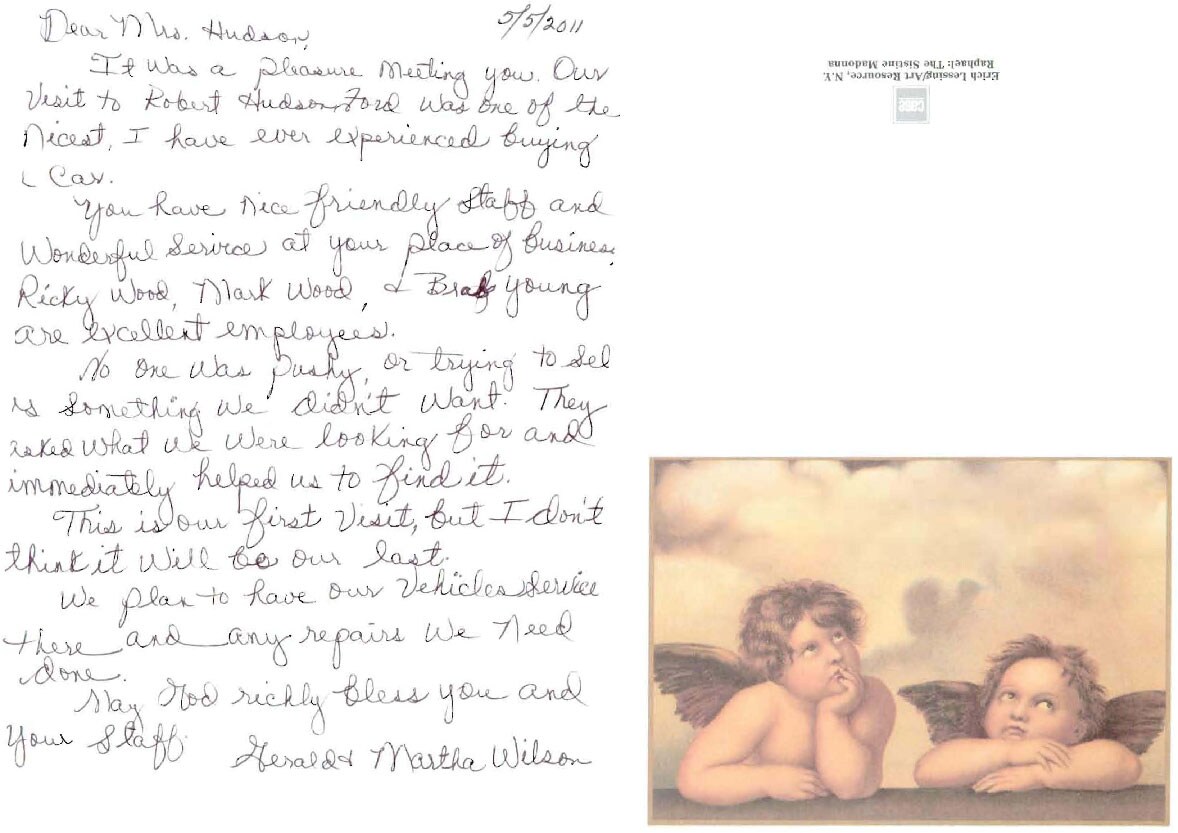 5/5/2011
Dear Mrs. Hudson,
It was a pleasure meeting you. Our
Visit to Robert Hudson Ford was one of the
Nicest, I have ever experienced buying
Car.
You have nice friendly staff and
Wonderful Serivce at your place of business.
Ricky Wood, Mark Wood, & Brad Young
are excellent employees.
No one was pushy, or trying to sel
us something we didn't want. They
asked what we were looking for and
immediately helped us to find it.
This is our first visit, but I don't
think it will be our last.
We plan to have our vehicles service
there and any repairs we need
done.
May God richly bless you and
your staff.
Gerald & Martha Wilson
Erich Lessing/Art Resource, N.Y.
Raphael: The Sistine Madonna